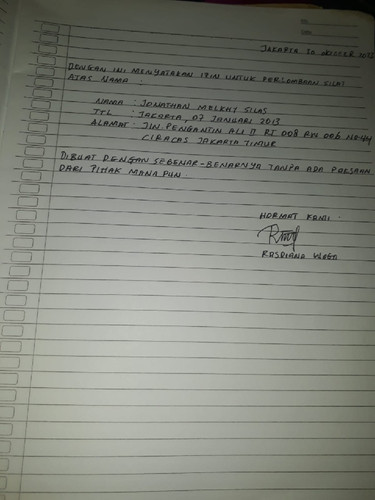 JAKARTA 30 OKTOBER
DENGAN INI MENYATAKAN IZIN UNTUK PERLOMBAAN SILAT
ATAS NAMA :
NAMA : JONATHAN MELKHY SILAS
TTL : JAKARTA, 07 JANUARI 2013
ALAMAT : JLN PENGANTIN ALI II RT 008 RW 006
CIRACAS JAKARTA TIMUR
DIBUAT DENGAN SEBENAR-BENARNYA TANPA ADA PAKSAAN
DARI PIHAK MANA PUN.
HORMAT KAMI.